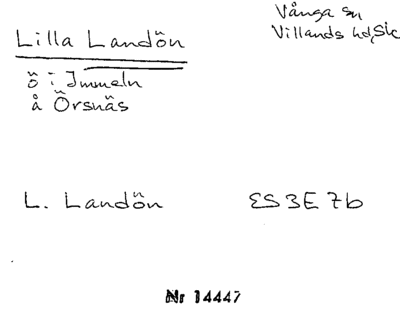 Lilla Landön
Vånga sn
Villands hd, Skc
ö i Immeln
å Örsnäs
L. Landön
ES 3E 7b
Nr 14447